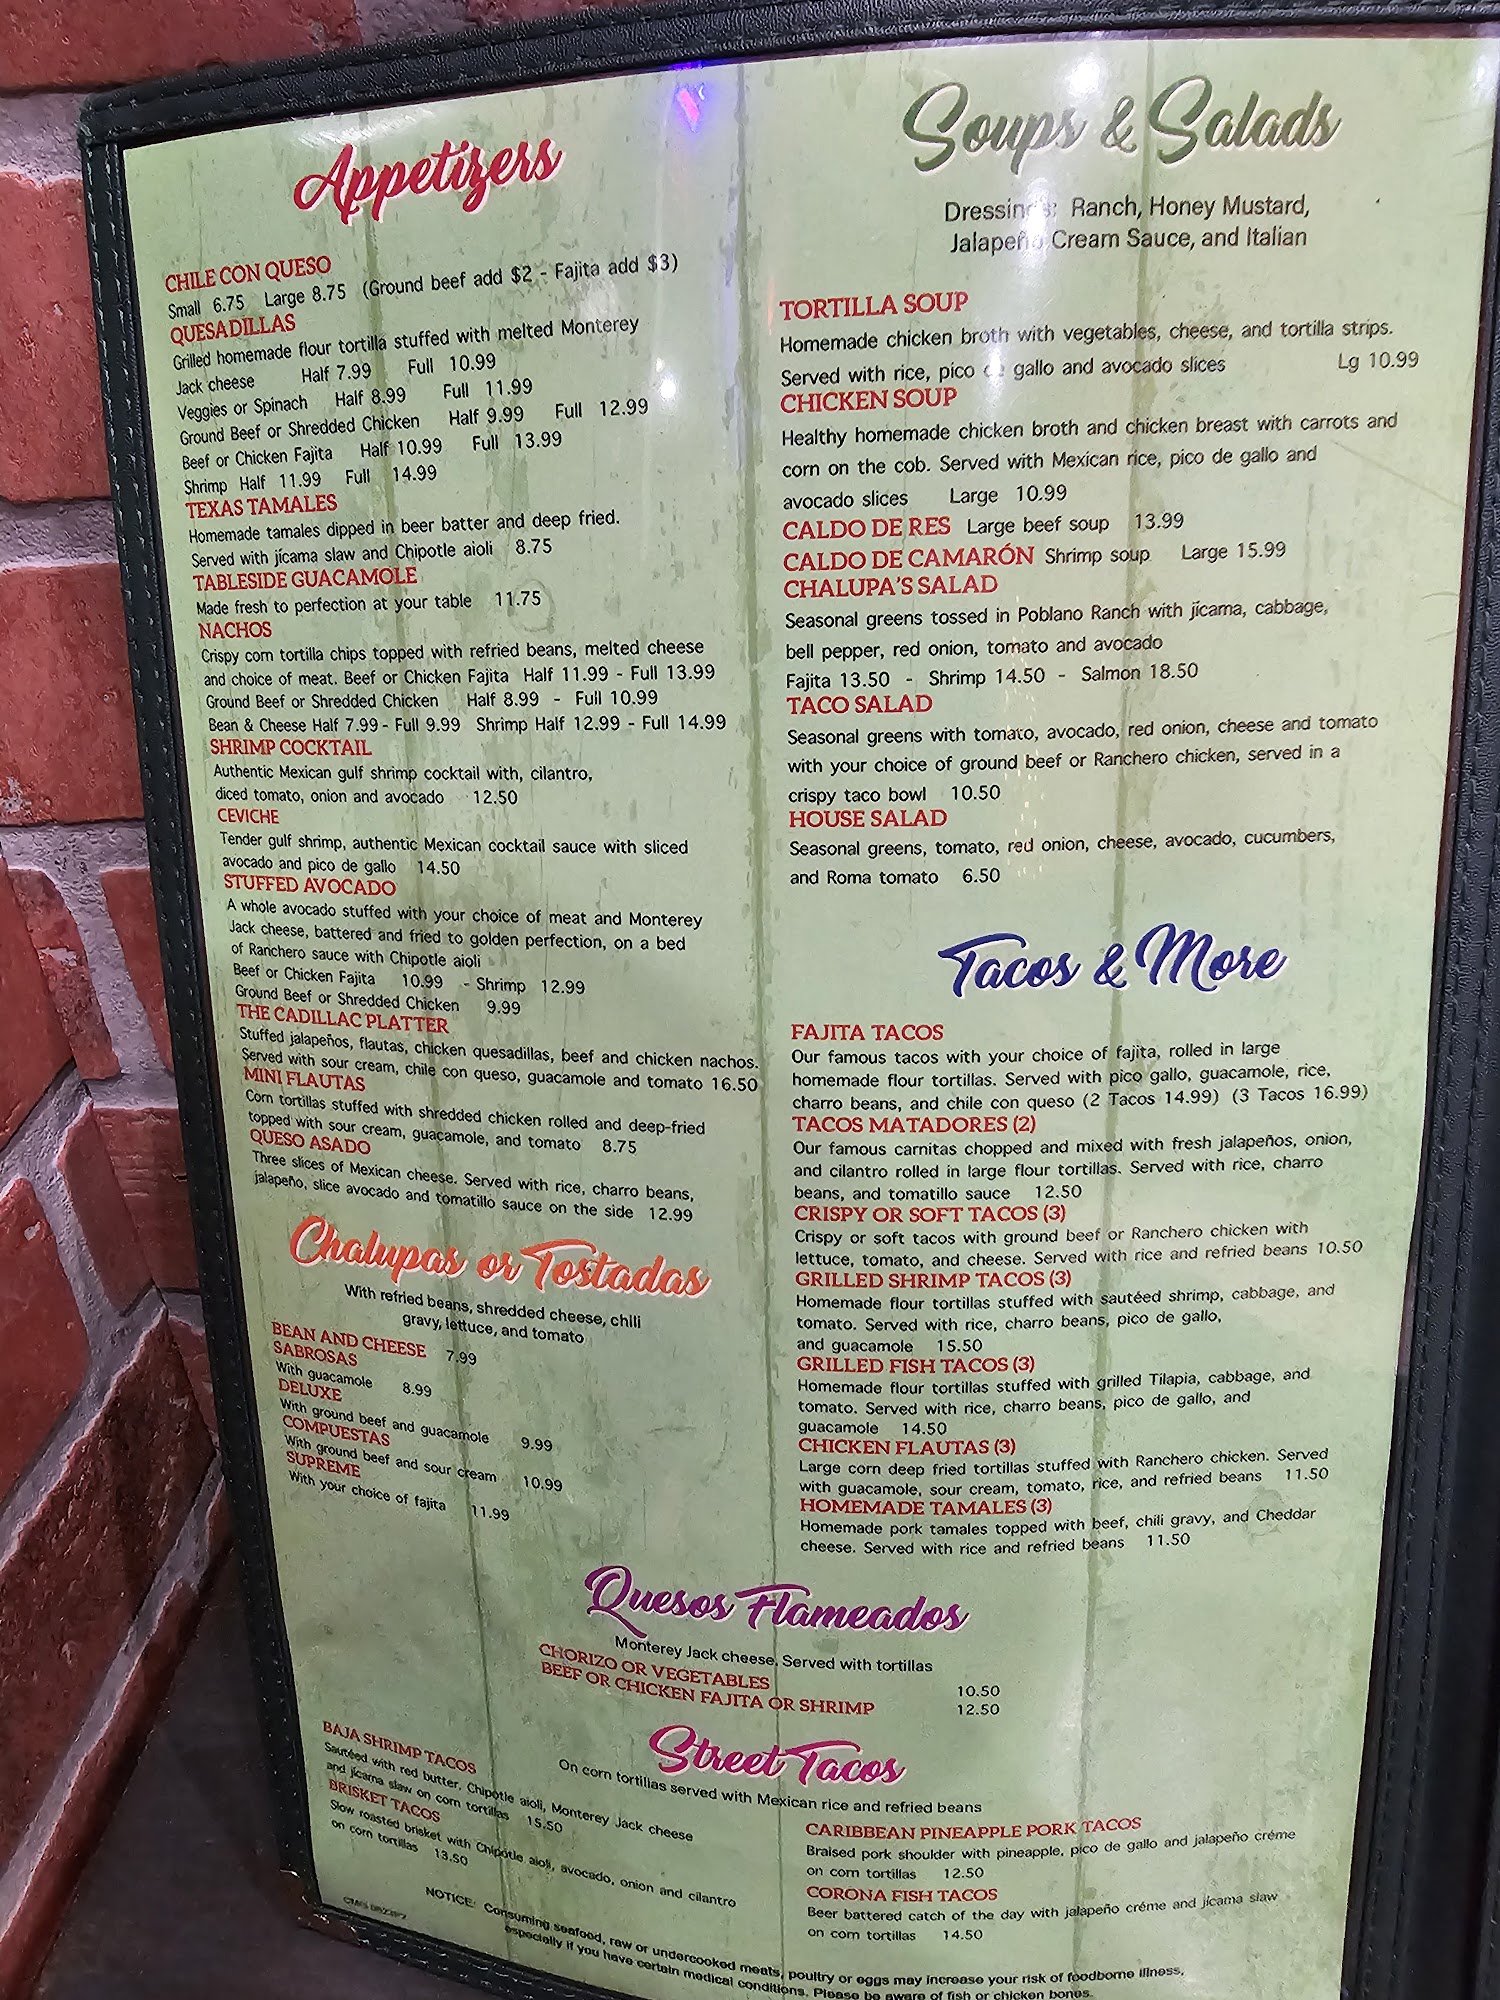 Appetizers
CHILE CON QUESO
Small 6.75 Large 8.75 (Ground beef add $2 - Fajita add $3)
QUESADILLAS
Grilled homemade flour tortilla stuffed with melted Monterey
Jack cheese Half 7.99 Full 10.99
Veggies or Spinach Half 8.99 Full 11.99
Ground Beef or Shredded Chicken Half 9.99 Full 12.99
Beef or Chicken Fajita Half 10.99 Full 13.99
Shrimp Half 11.99 Full 14.99
TEXAS TAMALES
Homemade tamales dipped in beer batter and deep fried.
Served with jícama slaw and Chipotle aioli 8.75
TABLESIDE GUACAMOLE
Made fresh to perfection at your table 11.75
NACHOS
Crispy corn tortilla chips topped with refried beans, melted cheese
and choice of meat. Beef or Chicken Fajita Half 11.99 - Full 13.99
Ground Beef or Shredded Chicken Half 8.99 - Full 10.99
Bean & Cheese Half 7.99 - Full 9.99 Shrimp Half 12.99 - Full 14.99
SHRIMP COCKTAIL
Authentic Mexican gulf shrimp cocktail with, cilantro,
diced tomato, onion and avocado 12.50
CEVICHE
Tender gulf shrimp, authentic Mexican cocktail sauce with sliced
avocado and pico de gallo 14.50
STUFFED AVOCADO
A whole avocado stuffed with your choice of meat and Monterey
Jack cheese, battered and fried to golden perfection, on a bed
of Ranchero sauce with Chipotle aioli
Beef or Chicken Fajita 10.99 - Shrimp 12.99
Ground Beef or Shredded Chicken 9.99
THE CADILLAC PLATTER
Stuffed jalapeños, flautas, chicken quesadillas, beef and chicken nachos.
Served with sour cream, chile con queso, guacamole and tomato 16.50
MINI FLAUTAS
Corn tortillas stuffed with shredded chicken rolled and deep-fried
topped with sour cream, guacamole, and tomato 8.75
QUESO ASADO
Three slices of Mexican cheese. Served with rice, charro beans,
jalapeño, slice avocado and tomatillo sauce on the side 12.99
Chalupas or Tostadas
With refried beans, shredded cheese, chili
gravy, lettuce, and tomato
BEAN AND CHEESE 7.99
SABROSAS
With guacamole 8.99
DELUXE
With ground beef and guacamole 9.99
COMPUESTAS
With ground beef and sour cream 10.99
SUPREME
With your choice of fajita 11.99
Soups & Salads
Dressings: Ranch, Honey Mustard,
Jalapeño Cream Sauce, and Italian
TORTILLA SOUP
Homemade chicken broth with vegetables, cheese, and tortilla strips.
Served with rice, pico de gallo and avocado slices Lg 10.99
CHICKEN SOUP
Healthy homemade chicken broth and chicken breast with carrots and
corn on the cob. Served with Mexican rice, pico de gallo and
avocado slices Large 10.99
CALDO DE RES Large beef soup 13.99
CALDO DE CAMARÓN Shrimp soup Large 15.99
CHALUPA'S SALAD
Seasonal greens tossed in Poblano Ranch with jícama, cabbage,
bell pepper, red onion, tomato and avocado
Fajita 13.50 - Shrimp 14.50 - Salmon 18.50
TACO SALAD
Seasonal greens with tomato, avocado, red onion, cheese and tomato
with your choice of ground beef or Ranchero chicken, served in a
crispy taco bowl 10.50
HOUSE SALAD
Seasonal greens, tomato, red onion, cheese, avocado, cucumbers,
and Roma tomato 6.50
Tacos & More
FAJITA TACOS
Our famous tacos with your choice of fajita, rolled in large
homemade flour tortillas. Served with pico gallo, guacamole, rice,
charro beans, and chile con queso (2 Tacos 14.99) (3 Tacos 16.99)
TACOS MATADORES (2)
Our famous carnitas chopped and mixed with fresh jalapeños, onion,
and cilantro rolled in large flour tortillas. Served with rice, charro
beans, and tomatillo sauce 12.50
CRISPY OR SOFT TACOS (3)
Crispy or soft tacos with ground beef or Ranchero chicken with
lettuce, tomato, and cheese. Served with rice and refried beans 10.50
GRILLED SHRIMP TACOS (3)
Homemade flour tortillas stuffed with sautéed shrimp, cabbage, and
tomato. Served with rice, charro beans, pico de gallo,
and guacamole 15.50
GRILLED FISH TACOS (3)
Homemade flour tortillas stuffed with grilled Tilapia, cabbage, and
tomato. Served with rice, charro beans, pico de gallo, and
guacamole 14.50
CHICKEN FLAUTAS (3)
Large corn deep fried tortillas stuffed with Ranchero chicken. Served
with guacamole, sour cream, tomato, rice, and refried beans 11.50
HOMEMADE TAMALES (3)
Homemade pork tamales topped with beef, chili gravy, and Cheddar
cheese. Served with rice and refried beans 11.50
Quesos Flameados
Monterey Jack cheese. Served with tortillas
CHORIZO OR VEGETABLES 10.50
BEEF OR CHICKEN FAJITA OR SHRIMP 12.50
Street Tacos
On corn tortillas served with Mexican rice and refried beans
BAJA SHRIMP TACOS
Sautéed with red butter, Chipotle aioli, Monterey Jack cheese
and jícama slaw on corn tortillas 15.50
BRISKET TACOS
Slow roasted brisket with Chipotle aioli, avocado, onion and cilantro
on corn tortillas 13.50
CARIBBEAN PINEAPPLE PORK TACOS
Braised pork shoulder with pineapple, pico de gallo and jalapeño créme
on corn tortillas 12.50
CORONA FISH TACOS
Beer battered catch of the day with jalapeño créme and jícama slaw
on corn tortillas 14.50
NOTICE: Consuming seafood, raw or undercooked meats, poultry or eggs may increase your risk of foodborne illness,
especially if you have certain medical conditions. Please be aware of fish or chicken bones.